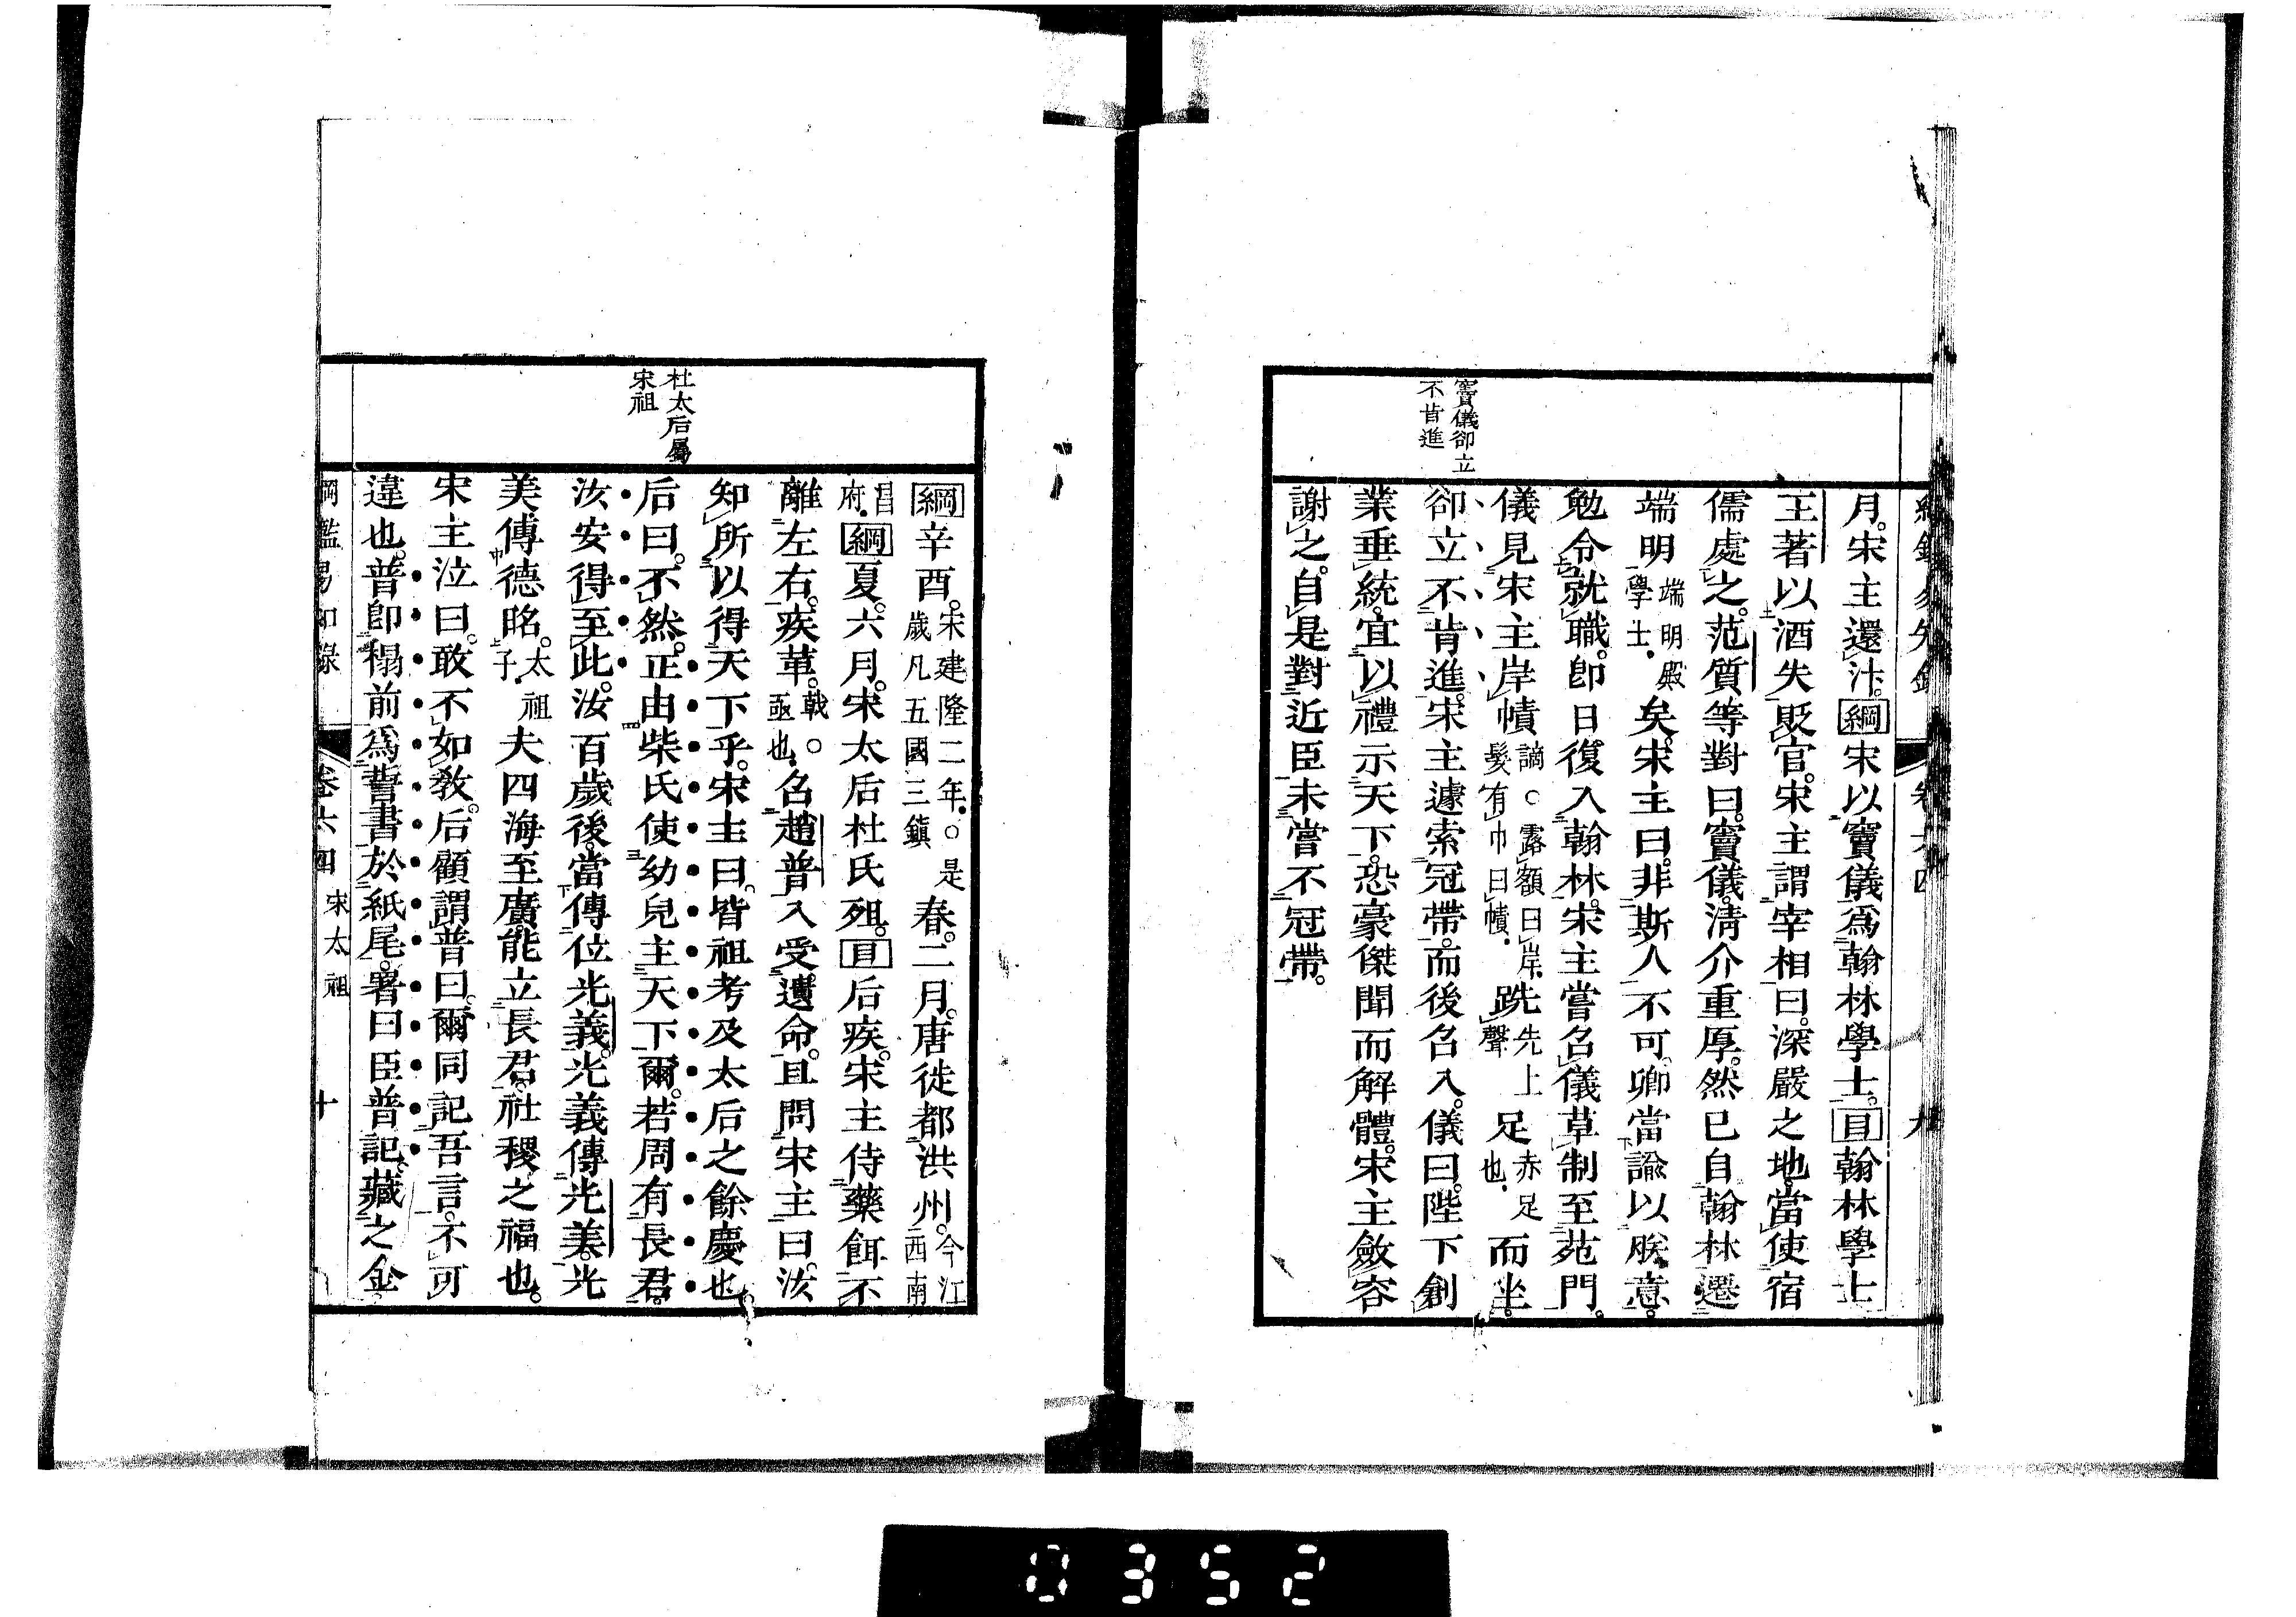 竇儀卻立
不肯進
月。宋主還汴。綱宋以竇儀爲翰林學士。目翰林學士
王著以酒失貶官。宋主謂宰相曰。深嚴之地。當使宿
儒處之。范質等對曰。竇儀。清介重厚。然已自翰林遷
端明端明殿學士矣。宋主曰。非斯人不可。卿當諭以朕意。
勉令就職。卽日復入翰林。宋主嘗召儀草制至苑門。
儀見宋主岸幘謫○露額曰岸髮有巾曰幘跣先上聲足赤足也而坐。
卻立不肯進。宋主遽索冠帶。而後召入。儀曰。陛下創
業垂統。宜以禮示天下。恐豪傑聞而解體。宋主斂容
謝之。自是對近臣未嘗不冠帶。
杜太后屬
宋祖
綱辛酉。宋建隆二年○是歲凡五國三鎮春。二月。唐徙都洪州。今江西南
昌府綱夏。六月。宋太后杜氏殂。目后疾。宋主侍藥餌不
離左右。疾革。戟○亟也召趙普入受遺命。且問宋主曰。汝
知所以得天下乎。宋主曰。皆祖考及太后之餘慶也。
后曰。不然。正由柴氏使幼兒主天下爾。若周有長君。
汝安得至此。汝百歲後。當傳位光義。光義傳光美。光
美傳德昭。太祖子夫四海至廣。能立長君。社稷之福也。
宋主泣曰。敢不如教。后顧謂普曰。爾同記吾言。不可
違也。普卽榻前爲誓書。於紙尾。署曰臣普記。藏之金
綱鑑易知錄 卷六四 宋太祖 十
0352